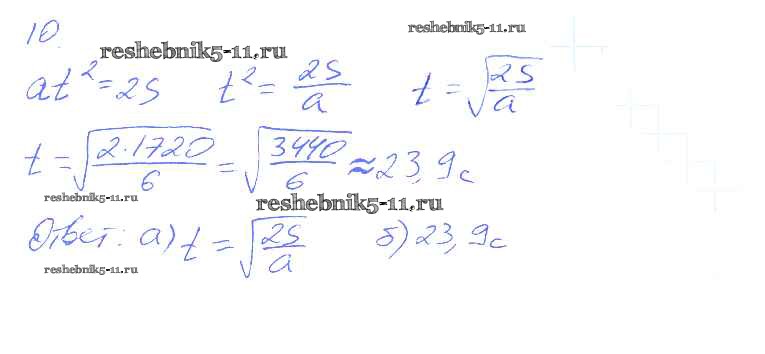 10.
reshebnik5-11.ru
reshebnik5-11.ru
at² = 2s   t² = 2s/a   t = √(2s/a)
t = √(2·1720/6) = √(3440/6) ≈ 23,9 с
reshebnik5-11.ru
reshebnik5-11.ru
Ответ: а) t = √(2s/a)   б) 23,9 с
reshebnik5-11.ru